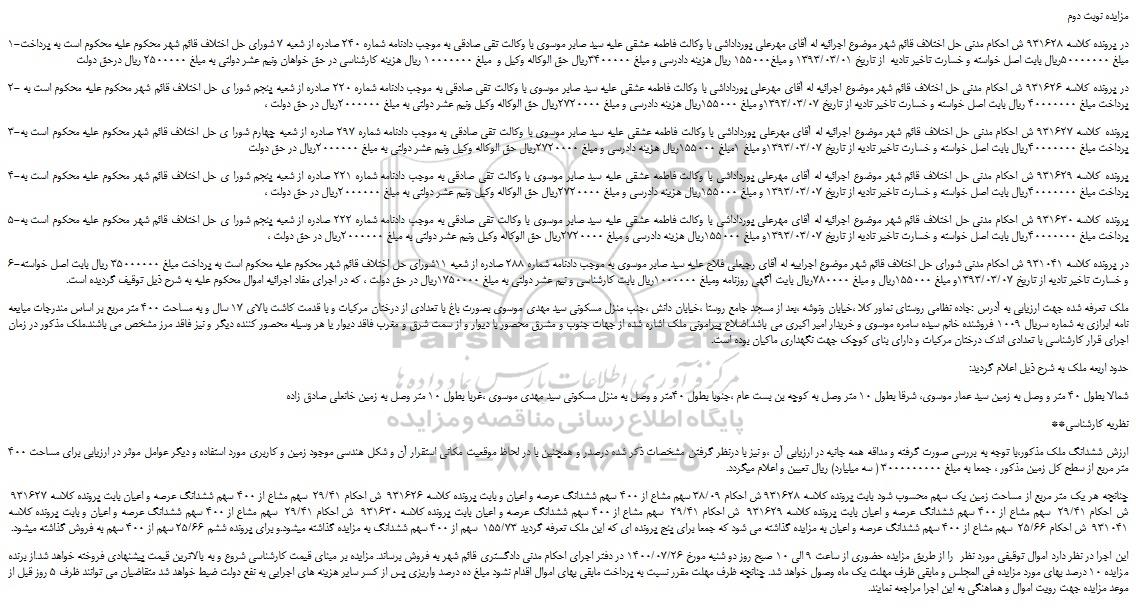 مزایده نوبت دوم
در پرونده کلاسه ۹۳۱۶۲۸ ش احکام مدنی حل اختلاف قائم شهر موضوع اجرائیه له آقای مهرعلی پورداداشی با وکالت فاطمه عشقی علیه سید صابر موسوی با وکالت تقی صادقی به موجب دادنامه شماره ۲۴۰ صادره از شعبه ۷ شورای حل اختلاف قائم شهر محکوم علیه محکوم است به پرداخت-۱
مبلغ ۵۰۰۰۰۰۰۰ریال بابت اصل خواسته و خسارت تاخیر تادیه از تاریخ ۱۳۹۳/۰۳/۰۱ و مبلغ۱۵۵۰۰۰ ریال هزینه دادرسی و مبلغ ۳۴۰۰۰۰۰ریال حق الوکاله وکیل و مبلغ ۱۰۰۰۰۰۰۰ ریال هزینه کارشناسی در حق خواهان ونیم عشر دولتی به مبلغ ۲۵۰۰۰۰۰ ریال درحق دولت
در پرونده کلاسه ۹۳۱۶۲۶ ش احکام مدنی حل اختلاف قائم شهر موضوع اجرائیه له آقای مهرعلی پورداداشی با وکالت فاطمه عشقی علیه سید صابر موسوی با وکالت تقی صادقی به موجب دادنامه شماره ۲۲۰ صادره از شعبه پنجم شورا ی حل اختلاف قائم شهر محکوم علیه محکوم است به -۲
پرداخت مبلغ ۴۰۰۰۰۰۰۰ ریال بابت اصل خواسته و خسارت تاخیر تادیه از تاریخ ۱۳۹۳/۰۳/۰۷و مبلغ ۱۵۵۰۰۰ریال هزینه دادرسی و مبلغ ۲۷۲۰۰۰۰ریال حق الوکاله وکیل ونیم عشر دولتی به مبلغ ۲۰۰۰۰۰۰ریال در حق دولت ،
پرونده کلاسه ۹۳۱۶۲۷ ش احکام مدنی حل اختلاف قائم شهر موضوع اجرائیه له آقای مهرعلی پورداداشی با وکالت فاطمه عشقی علیه سید صابر موسوی با وکالت تقی صادقی به موجب دادنامه شماره ۲۹۷ صادره از شعبه چهارم شورا ی حل اختلاف قائم شهر محکوم علیه محکوم است به-۳
پرداخت مبلغ ۴۰۰۰۰۰۰۰ریال بابت اصل خواسته و خسارت تاخیر تادیه از تاریخ ۱۳۹۳/۰۳/۰۷و مبلغ ۱مبلغ ۱۵۵۰۰۰ریال هزینه دادرسی و مبلغ ۲۷۲۰۰۰۰ریال حق الوکاله وکیل ونیم عشر دولتی به مبلغ ۲۰۰۰۰۰۰ریال در حق دولت
پرونده کلاسه ۹۳۱۶۲۹ ش احکام مدنی حل اختلاف قائم شهر موضوع اجرائیه له آقای مهرعلی پورداداشی با وکالت فاطمه عشقی علیه سید صابر موسوی با وکالت تقی صادقی به موجب دادنامه شماره ۲۲۱ صادره از شعبه پنجم شورا ی حل اختلاف قائم شهر محکوم علیه محکوم است به-۴
پرداخت مبلغ ۴۰۰۰۰۰۰۰ریال بابت اصل خواسته و خسارت تاخیر تادیه از تاریخ ۱۳۹۳/۰۳/۰۷ و مبلغ ۱۵۵۰۰۰ریال هزینه دادرسی و مبلغ ۲۷۲۰۰۰۰ریال حق الوکاله وکیل ونیم عشر دولتی به مبلغ ۲۰۰۰۰۰۰ریال در حق دولت ،
پرونده کلاسه ۹۳۱۶۳۰ ش احکام مدنی حل اختلاف قائم شهر موضوع اجرائیه له آقای مهرعلی پورداداشی با وکالت فاطمه عشقی علیه سید صابر موسوی با وکالت تقی صادقی به موجب دادنامه شماره ۲۲۲ صادره از شعبه پنجم شورا ی حل اختلاف قائم شهر محکوم علیه محکوم است به-۵
پرداخت مبلغ ۴۰۰۰۰۰۰۰ریال بابت اصل خواسته و خسارت تاخیر تادیه از تاریخ ۱۳۹۳/۰۳/۰۷و مبلغ ۱۵۵۰۰۰ریال هزینه دادرسی و مبلغ ۲۷۲۰۰۰۰ریال حق الوکاله وکیل ونیم عشر دولتی به مبلغ ۲۰۰۰۰۰۰ریال در حق دولت ،
در پرونده کلاسه ۹۳۱۰۴۱ ش احکام مدنی شورای حل اختلاف قائم شهر موضوع اجراییه له آقای رجبعلی فلاح علیه سید صابر موسوی به موجب دادنامه شماره ۲۸۸ صادره از شعبه ۱۱شورای حل اختلاف قائم شهر محکوم علیه محکوم است به پرداخت مبلغ ۳۵۰۰۰۰۰۰ ریال بابت اصل خواسته-۶
و خسارت تاخیر تادیه از تاریخ ۱۳۹۳/۰۳/۰۷و مبلغ ۱۵۵۰۰۰ریال و مبلغ ۷۸۰۰۰۰ریال بابت آگهی روزنامه ومبلغ ۱۰۰۰۰۰۰ریال بابت کارشناسی و نیم عشر دولتی به مبلغ ۱۷۵۰۰۰۰ریال در حق دولت ، که در اجرای مفاد اجرائیه اموال محکوم علیه به شرح ذیل توقیف گردیده است.
ملک تعرفه شده جهت ارزیابی به آدرس :جاده نظامی روستای نماور کلا ،خیابان ونوشه ،بعد از مسجد جامع روستا ،خیابان دانش ،جنب منزل مسکونی سید مهدی موسوی بصورت باغ با تعدادی از درختان مرکبات و با قدمت کاشت بالای ۱۷ سال و به مساحت ۴۰۰ متر مربع بر اساس مندرجات مبایعه
نامه ابرازی به شماره سریال ۱۰۰۹ فروشنده خانم سیده سامره موسوی و خریدار امیر اکبری می باشد.اضلاع پیرامونی ملک اشاره شده از جهات جنوب و مشرق محصور با دیوار و از سمت شرق و مغرب فاقد دیوار یا هر وسیله محصور کننده دیگر و نیز فاقد مرز مشخص می باشند.ملک مذکور در زمان
اجرای قرار کارشناسی با تعدادی اندک درختان مرکبات و دارای بنای کوچک جهت نگهداری ماکیان بوده است.
حدود اربعه ملک به شرح ذیل اعلام گردید:
شمالا بطول ۴۰ متر و وصل به زمین سید عمار موسوی، شرقا بطول ۱۰ متر وصل به کوچه بن بست عام ،جنوبا بطول ۴۰متر و وصل به منزل مسکونی سید مهدی موسوی ،غربا بطول ۱۰ متر وصل به زمین خانعلی صادق زاده
نظریه کارشناسی**
ارزش ششدانگ ملک مذکور،با توجه به بررسی صورت گرفته و مداقه همه جانبه در ارزیابی آن ،و نیز با درنظر گرفتن مشخصات ذکر شده درصدر و همچنین با در لحاظ موقعیت مکانی استقرار آن و شکل هندسی موجود زمین و کاربری مورد استفاده و دیگر عوامل موثر در ارزیابی برای مساحت ۴۰۰
متر مربع از سطح کل زمین مذکور ، جمعا به مبلغ ۳۰۰۰۰۰۰۰۰۰ ( سه میلیارد) ریال تعیین و اعلام میگردد.
چنانچه هر یک متر مربع از مساحت زمین یک سهم محسوب شود بابت پرونده کلاسه ۹۳۱۶۲۸ ش احکام ۳۸/۰۹ سهم مشاع از ۴۰۰ سهم ششدانگ عرصه و اعیان و بابت پرونده کلاسه ۹۳۱۶۲۶ ش احکام ۲۹/۴۱ سهم مشاع از ۴۰۰ سهم ششدانگ عرصه و اعیان بابت پرونده کلاسه ۹۳۱۶۲۷
ش احکام ۲۹/۴۱ سهم مشاع از ۴۰۰ سهم ششدانگ عرصه و اعیان بابت پرونده کلاسه ۹۳۱۶۲۹ ش احکام ۲۹/۴۱ سهم مشاع از ۴۰۰ سهم ششدانگ عرصه و اعیان بابت پرونده کلاسه ۹۳۱۶۳۰ ش احکام ۲۹/۴۱ سهم مشاع از ۴۰۰ سهم ششدانگ عرصه و اعیان و بابت پرونده کلاسه
۹۳۱۰۴۱ ش احکام ۲۵/۶۶ سهم مشاع از ۴۰۰ سهم ششدانگ عرصه و اعیان به مزایده گذاشته می شود که جمعا برای پنج پرونده ای که این ملک تعرفه گردید ۱۵۵/۷۳ سهم از ۴۰۰ سهم ششدانگ به مزایده گذاشته میشود.و برای پرونده ششم ۲۵/۶۶ سهم از ۴۰۰ سهم به فروش گذاشته میشود.
این اجرا در نظر دارد اموال توقیفی مورد نظر را از طریق مزایده حضوری از ساعت ۹ الی ۱۰ صبح روز دو شنبه مورخ ۱۴۰۰/۰۷/۲۶ در دفتر اجرای احکام مدنی دادگستری قائم شهر به فروش برساند. مزایده بر مبنای قیمت کارشناسی شروع و به بالاترین قیمت پیشنهادی فروخته خواهد شد.از برنده
مزایده ۱۰ درصد بهای مورد مزایده فی المجلس و مابقی ظرف مهلت یک ماه وصول خواهد شد. چنانچه ظرف مهلت مقرر نسبت به پرداخت مابقی بهای اموال اقدام نشود مبلغ ده درصد واریزی پس از کسر سایر هزینه های اجرایی به نفع دولت ضبط خواهد شد متقاضیان می توانند ظرف ۵ روز قبل از
موعد مزایده جهت رویت اموال و هماهنگی به این اجرا مراجعه نمایند.
ParsNamadData
مرکز فرآوری اطلاعات پارس نماد داده ها
پایگاه اطلاع رسانی مناقصه و مزایده
۰۲۱-۸۸۳۴۹۶۷۰-۵